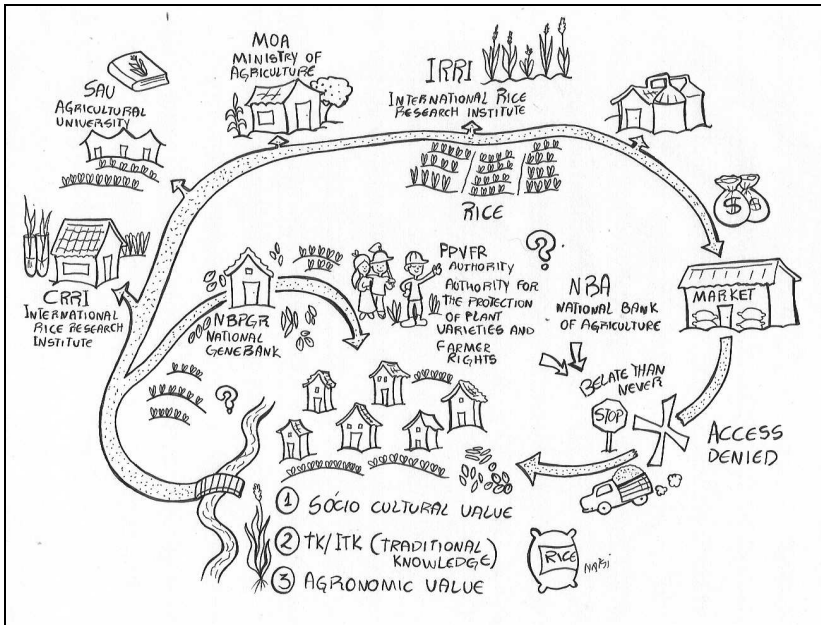 MOA
MINISTRY OF
AGRICULTURE
IRRI
INTERNATIONAL RICE
RESEARCH INSTITUTE
SAU
AGRICULTURAL
UNIVERSITY
RICE
$ $
CRRI
INTERNATIONAL
RICE RESEARCH
INSTITUTE
NBPGR
NATIONAL
GENEBANK
PPVFR
AUTHORITY
AUTHORITY FOR
THE PROTECTION
OF PLANT
VARIETIES AND
FARMER
RIGHTS
?
NBA
NATIONAL BANK
OF AGRICULTURE
MARKET
BELATE THAN
NEVER
STOP
ACCESS
DENIED
?
1 SÓCIO CULTURAL VALUE
2 TK/ITK (TRADITIONAL
KNOWLEDGE)
3 AGRONOMIC VALUE
RICE